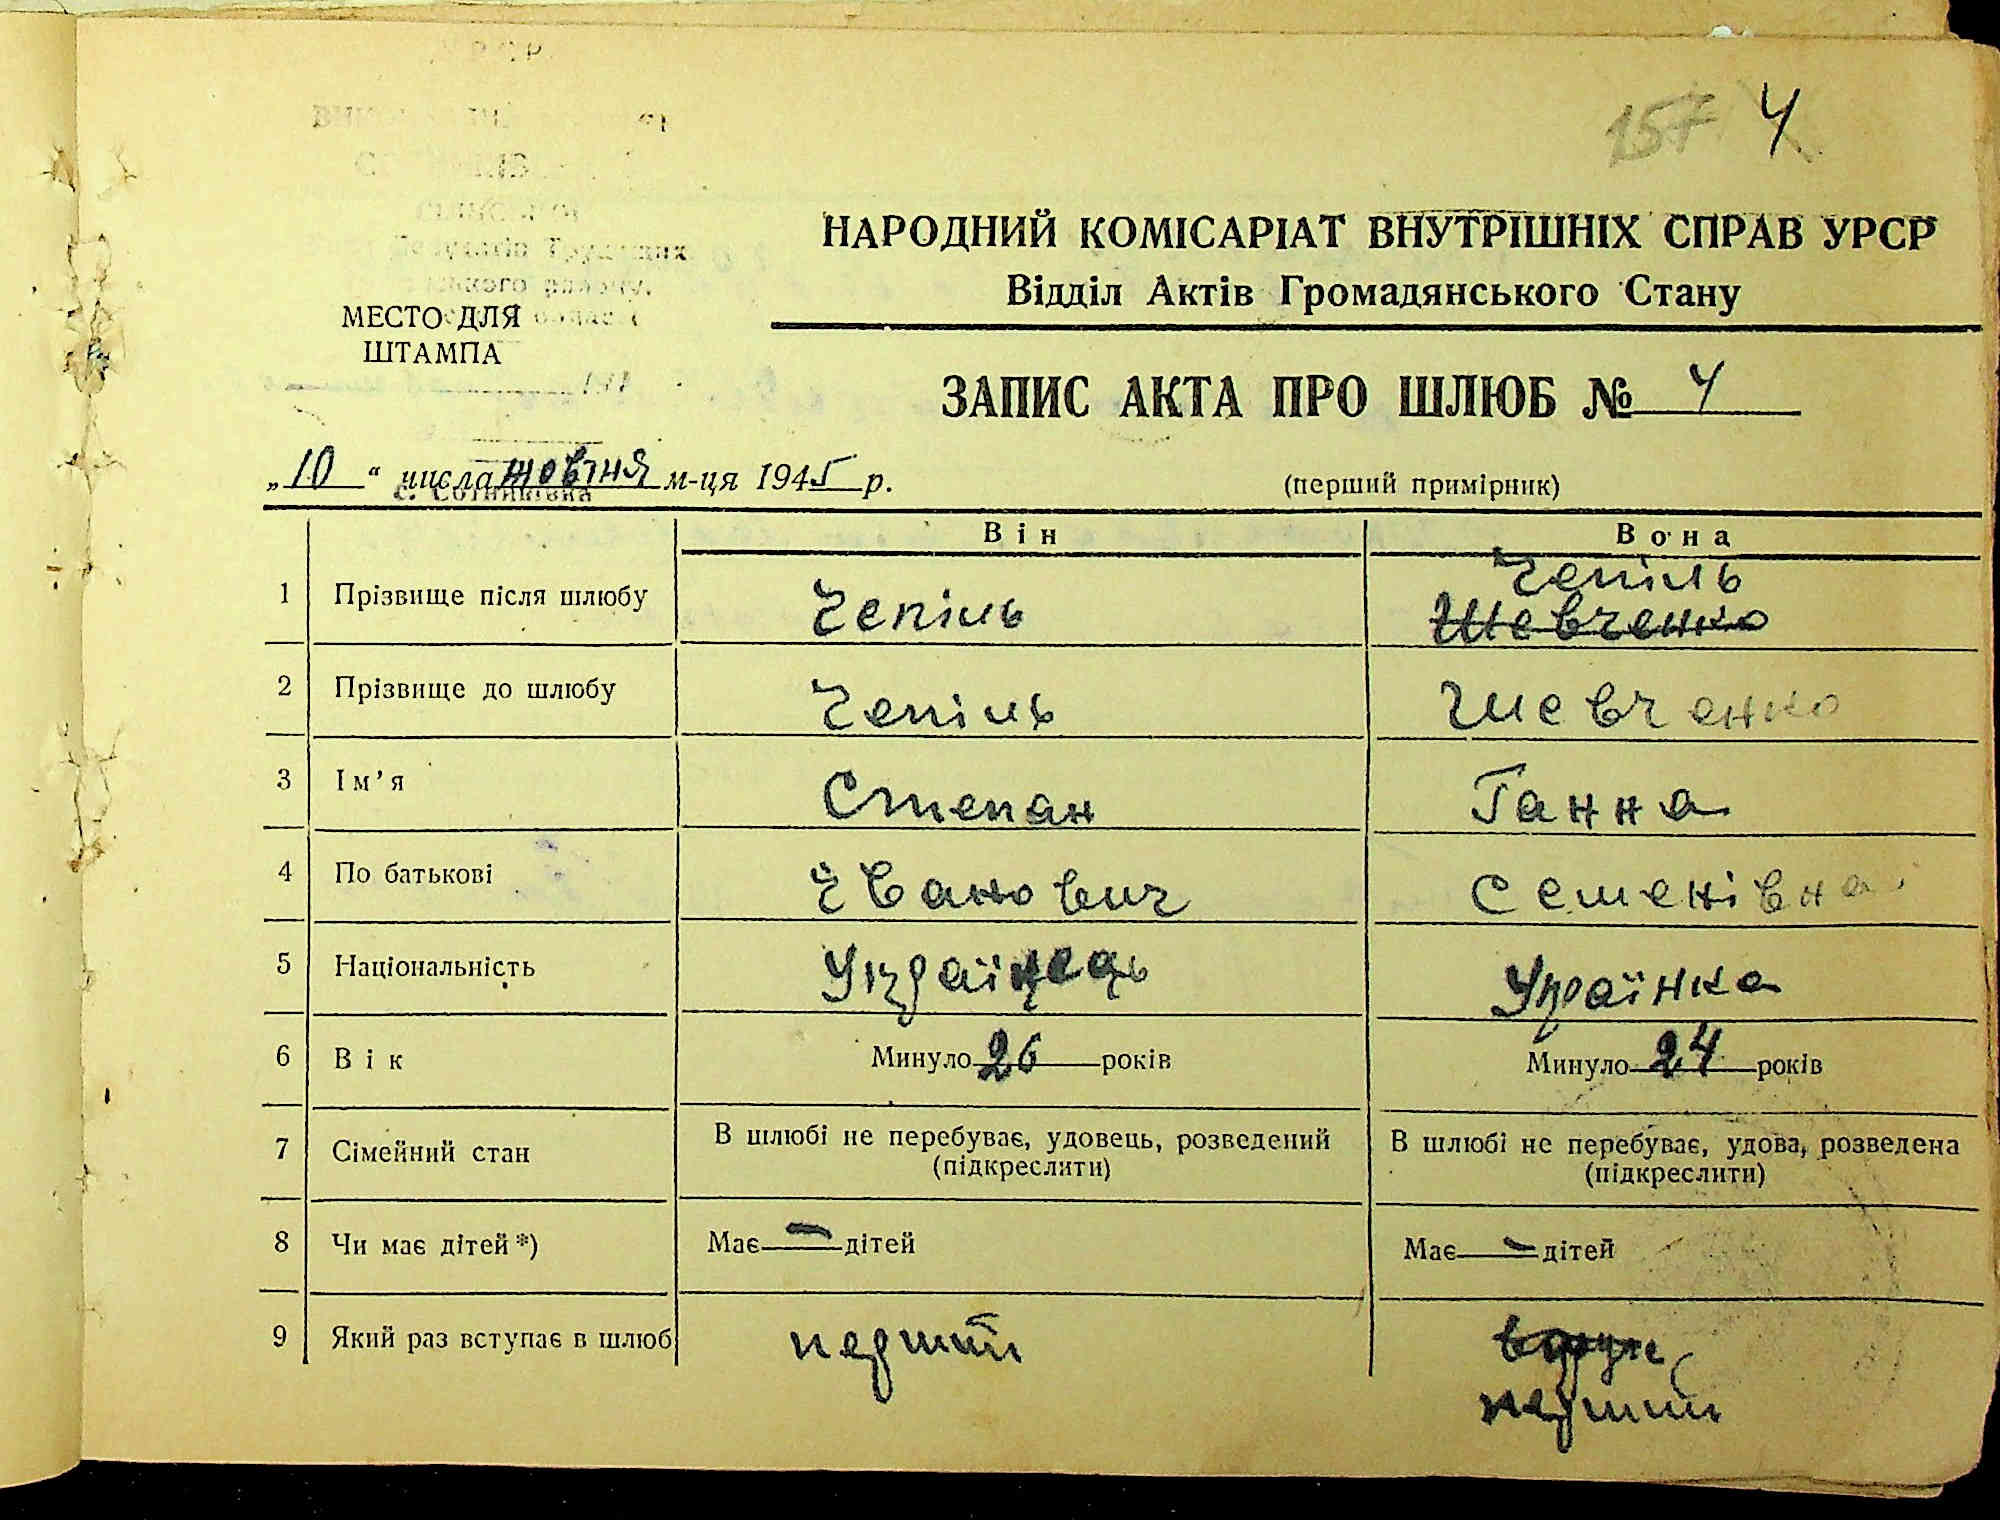 157 4
НАРОДНИЙ КОМІСАРІАТ ВНУТРІШНІХ СПРАВ УРСР
Відділ Актів Громадянського Стану
МЕСТО ДЛЯ
ШТАМПА
ЗАПИС АКТА ПРО ШЛЮБ № 4
„10“ числа жовтня м-ця 1945 р.
с. Сотниківка
(перший примірник)
Він Вона
Чепіль
1 Прізвище після шлюбу Чепіль Шевченко
2 Прізвище до шлюбу Чепіль Шевченко
3 Ім’я Степан Ганна
4 По батькові Іванович Семенівна
5 Національність Українець Українка
6 Вік Минуло 26 років Минуло 24 років
7 Сімейний стан В шлюбі не перебуває, удовець, розведений В шлюбі не перебуває, удова, розведена
(підкреслити) (підкреслити)
8 Чи має дітей*) Має — дітей Має — дітей
9 Який раз вступає в шлюб перший
перший